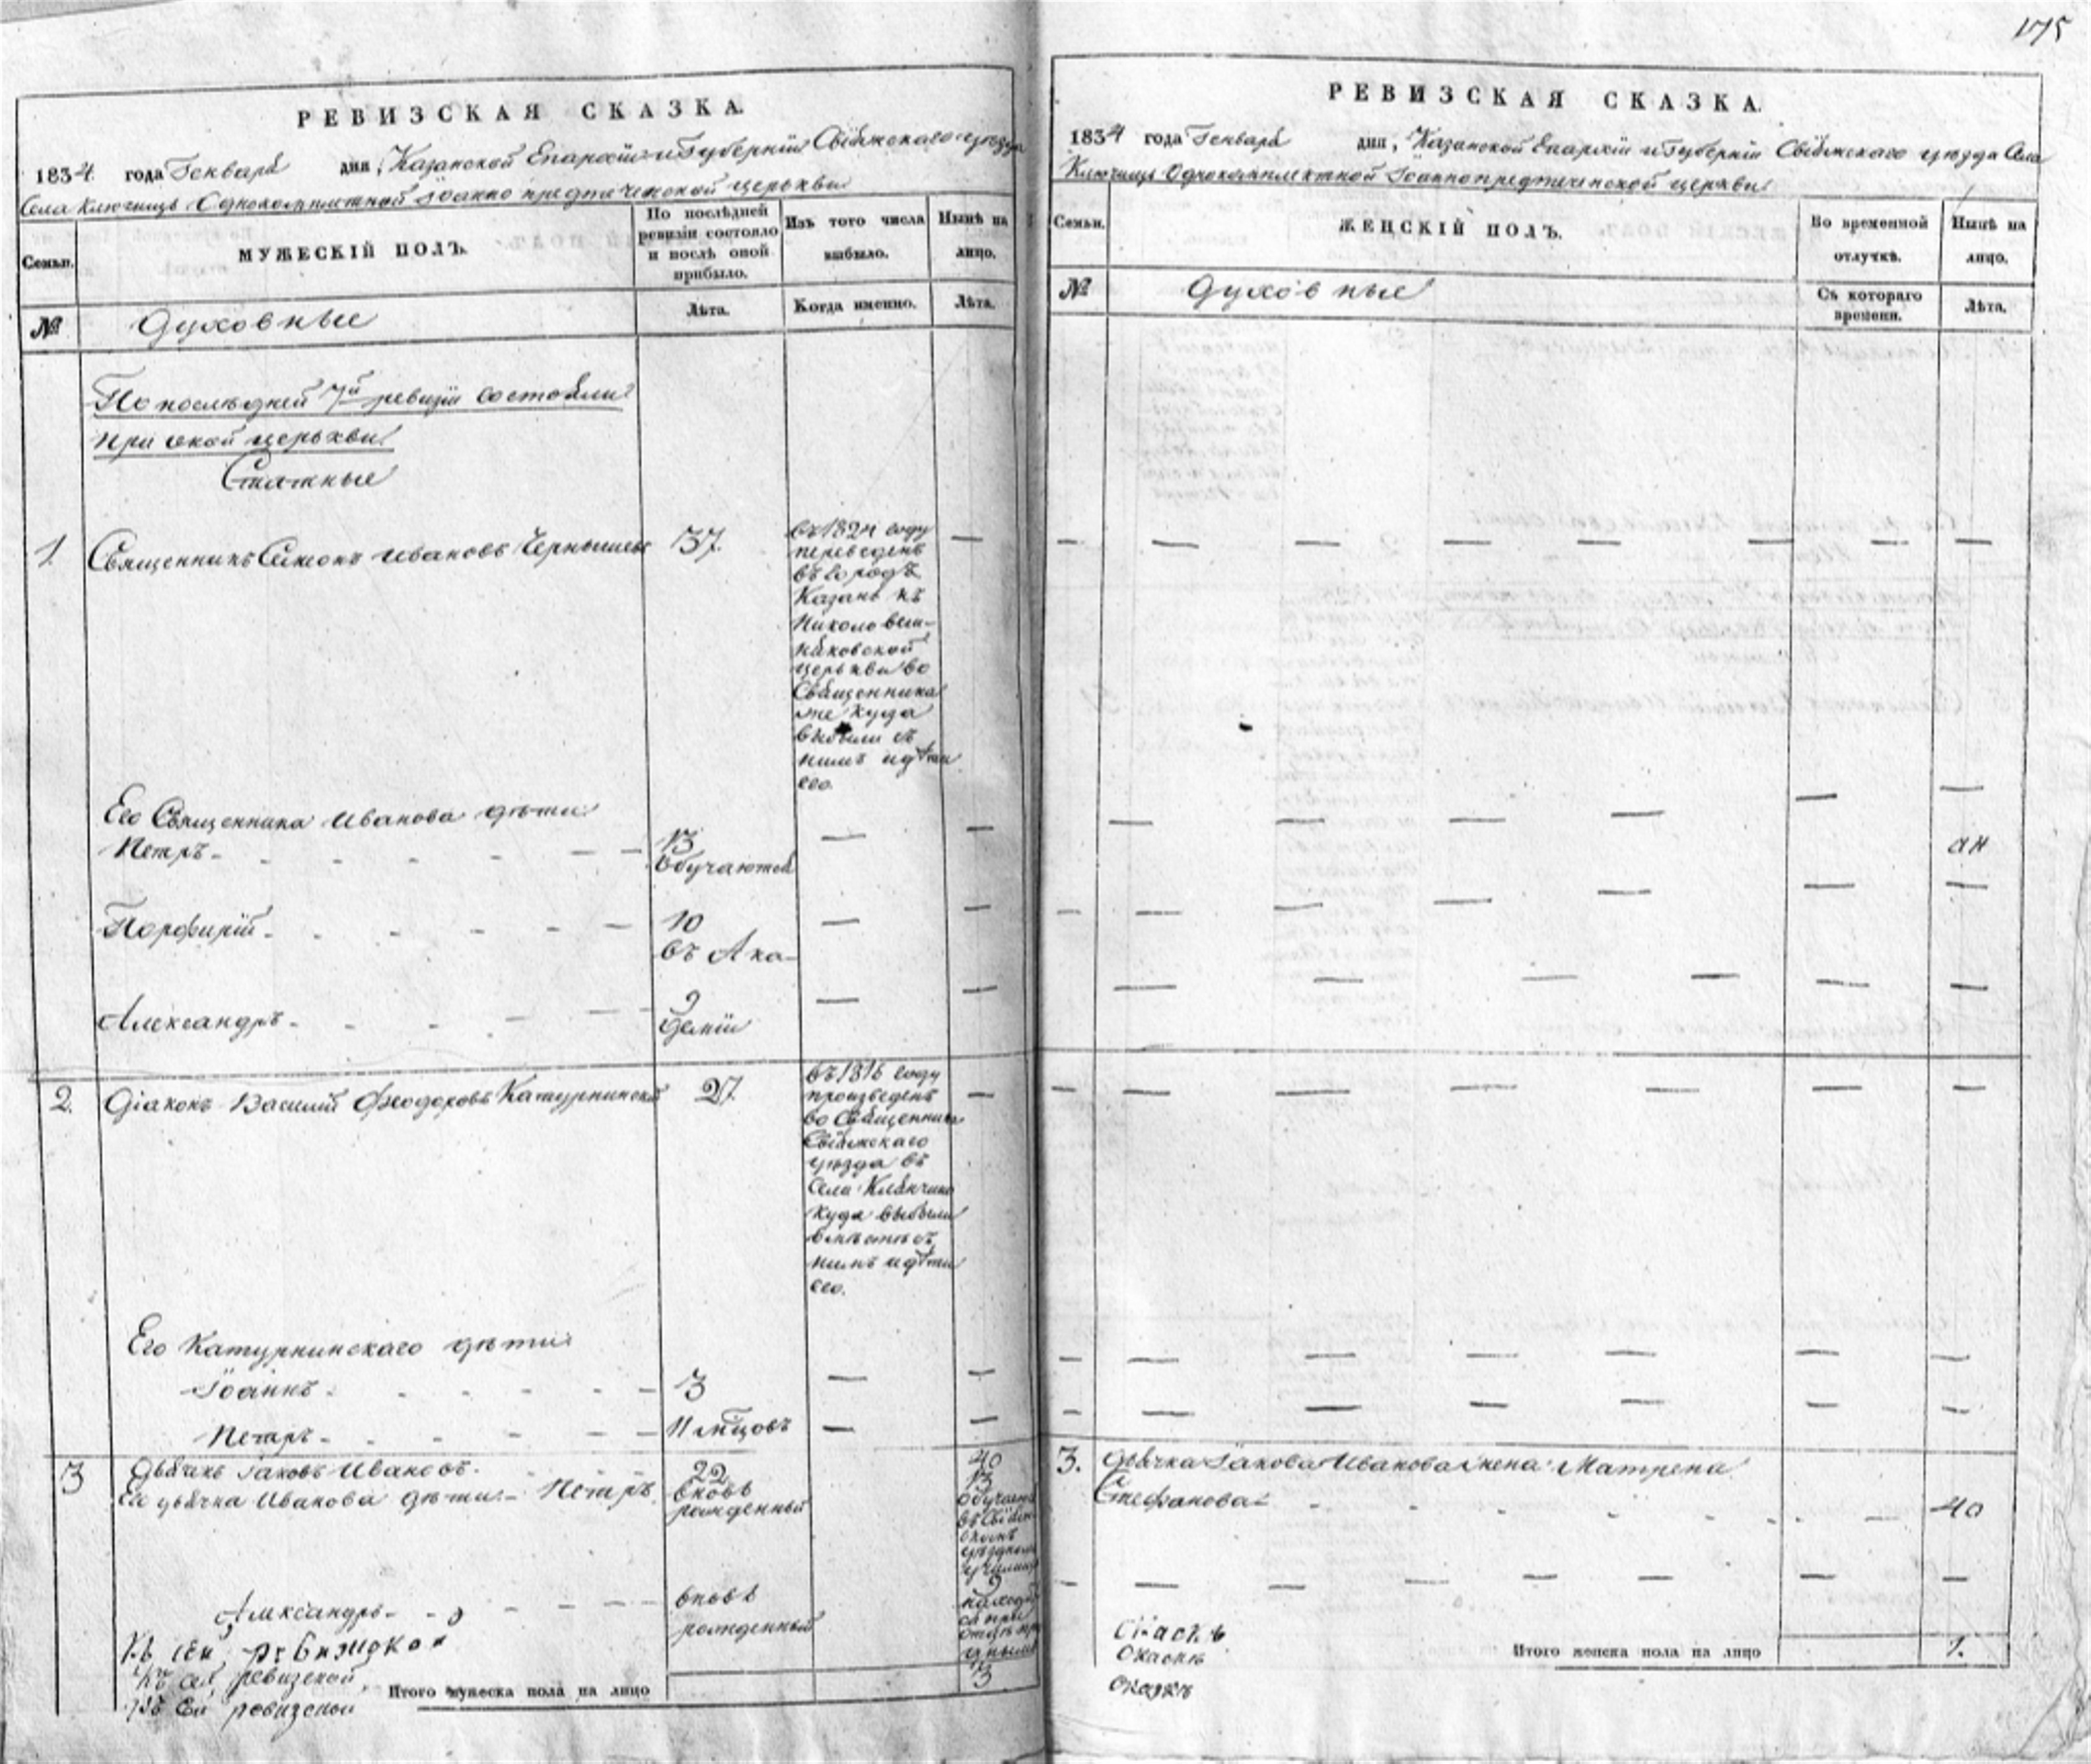 175
РЕВИЗСКАЯ СКАЗКА.
1834 года Генваря дня, Казанской Епархіи и Губерніи Свіяжскаго уѣзда
Села Ключищъ Однокомплетной Іоанно предтеченской церькви
Семьи.
МУЖЕСКІЙ ПОЛЪ.
По послѣдней
ревизіи состояло
и послѣ оной
прибыло.
Изъ того числа
выбыло.
Нынѣ на
лицо.
№
Духовные
Лѣта.
Когда именно.
Лѣта.
По послѣдней 7й ревизіи состояли
при оной церькви
Статные
1. Священникъ Симонъ Ивановъ Чернышевъ 37. —
въ 1824 году
переведенъ
въ городъ
Казань къ
Николо веш-
няковской
церькви во
Священника
же куда
выбыли съ
нимъ и дѣти
его.
Его Священника Иванова дѣти
Петръ - - - - — — 13 — —
Обучаются
Порфирій - - - - - — 10 — —
въ Ака-
Александръ - - - — — — 9 — —
деміи
2. Діаконъ Василій Феодоровъ Катурнинскій 27. —
въ 1816 году
произведенъ
во Священника
Свіяжскаго
уѣзда въ
Село Клянчино
куда выбыли
вмѣстѣ съ
нимъ и дѣти
его.
Его Катурнинскаго дѣти
Іоаннъ - - - - - — 3 — —
Петръ - - - - - — 11 мѣцовъ — —
3 Дьячкъ Іаковъ Ивановъ. 22 40
Его дьячка Иванова дѣти - Петръ. вновь
рожденный
13
обучает
въ Свіяж
скомъ
уѣздномъ
училищѣ
Александръ - - - — — вновь
рожденный
9
находит
ся при
отцѣ
Къ сей ревизской
Къ сей ревизской
Итого мужеска пола на лицо 3
РЕВИЗСКАЯ СКАЗКА.
1834 года Генваря дня, Казанской Епархіи и Губерніи Свіяжскаго уѣзда Села
Ключищъ Однокомплектной Іоаннопредтеченской церькви
Семьи.
ЖЕНСКІЙ ПОЛЪ.
Во временной
отлучкѣ.
Нынѣ на
лицо.
№
Духовные
Съ котораго
времени.
Лѣта.
3. Дьячка Іакова Иванова жена Матрена
Стефанова - - - - - - — 40
Сказкѣ
Сказкѣ
Сказкѣ
Итого женска пола на лицо 1.